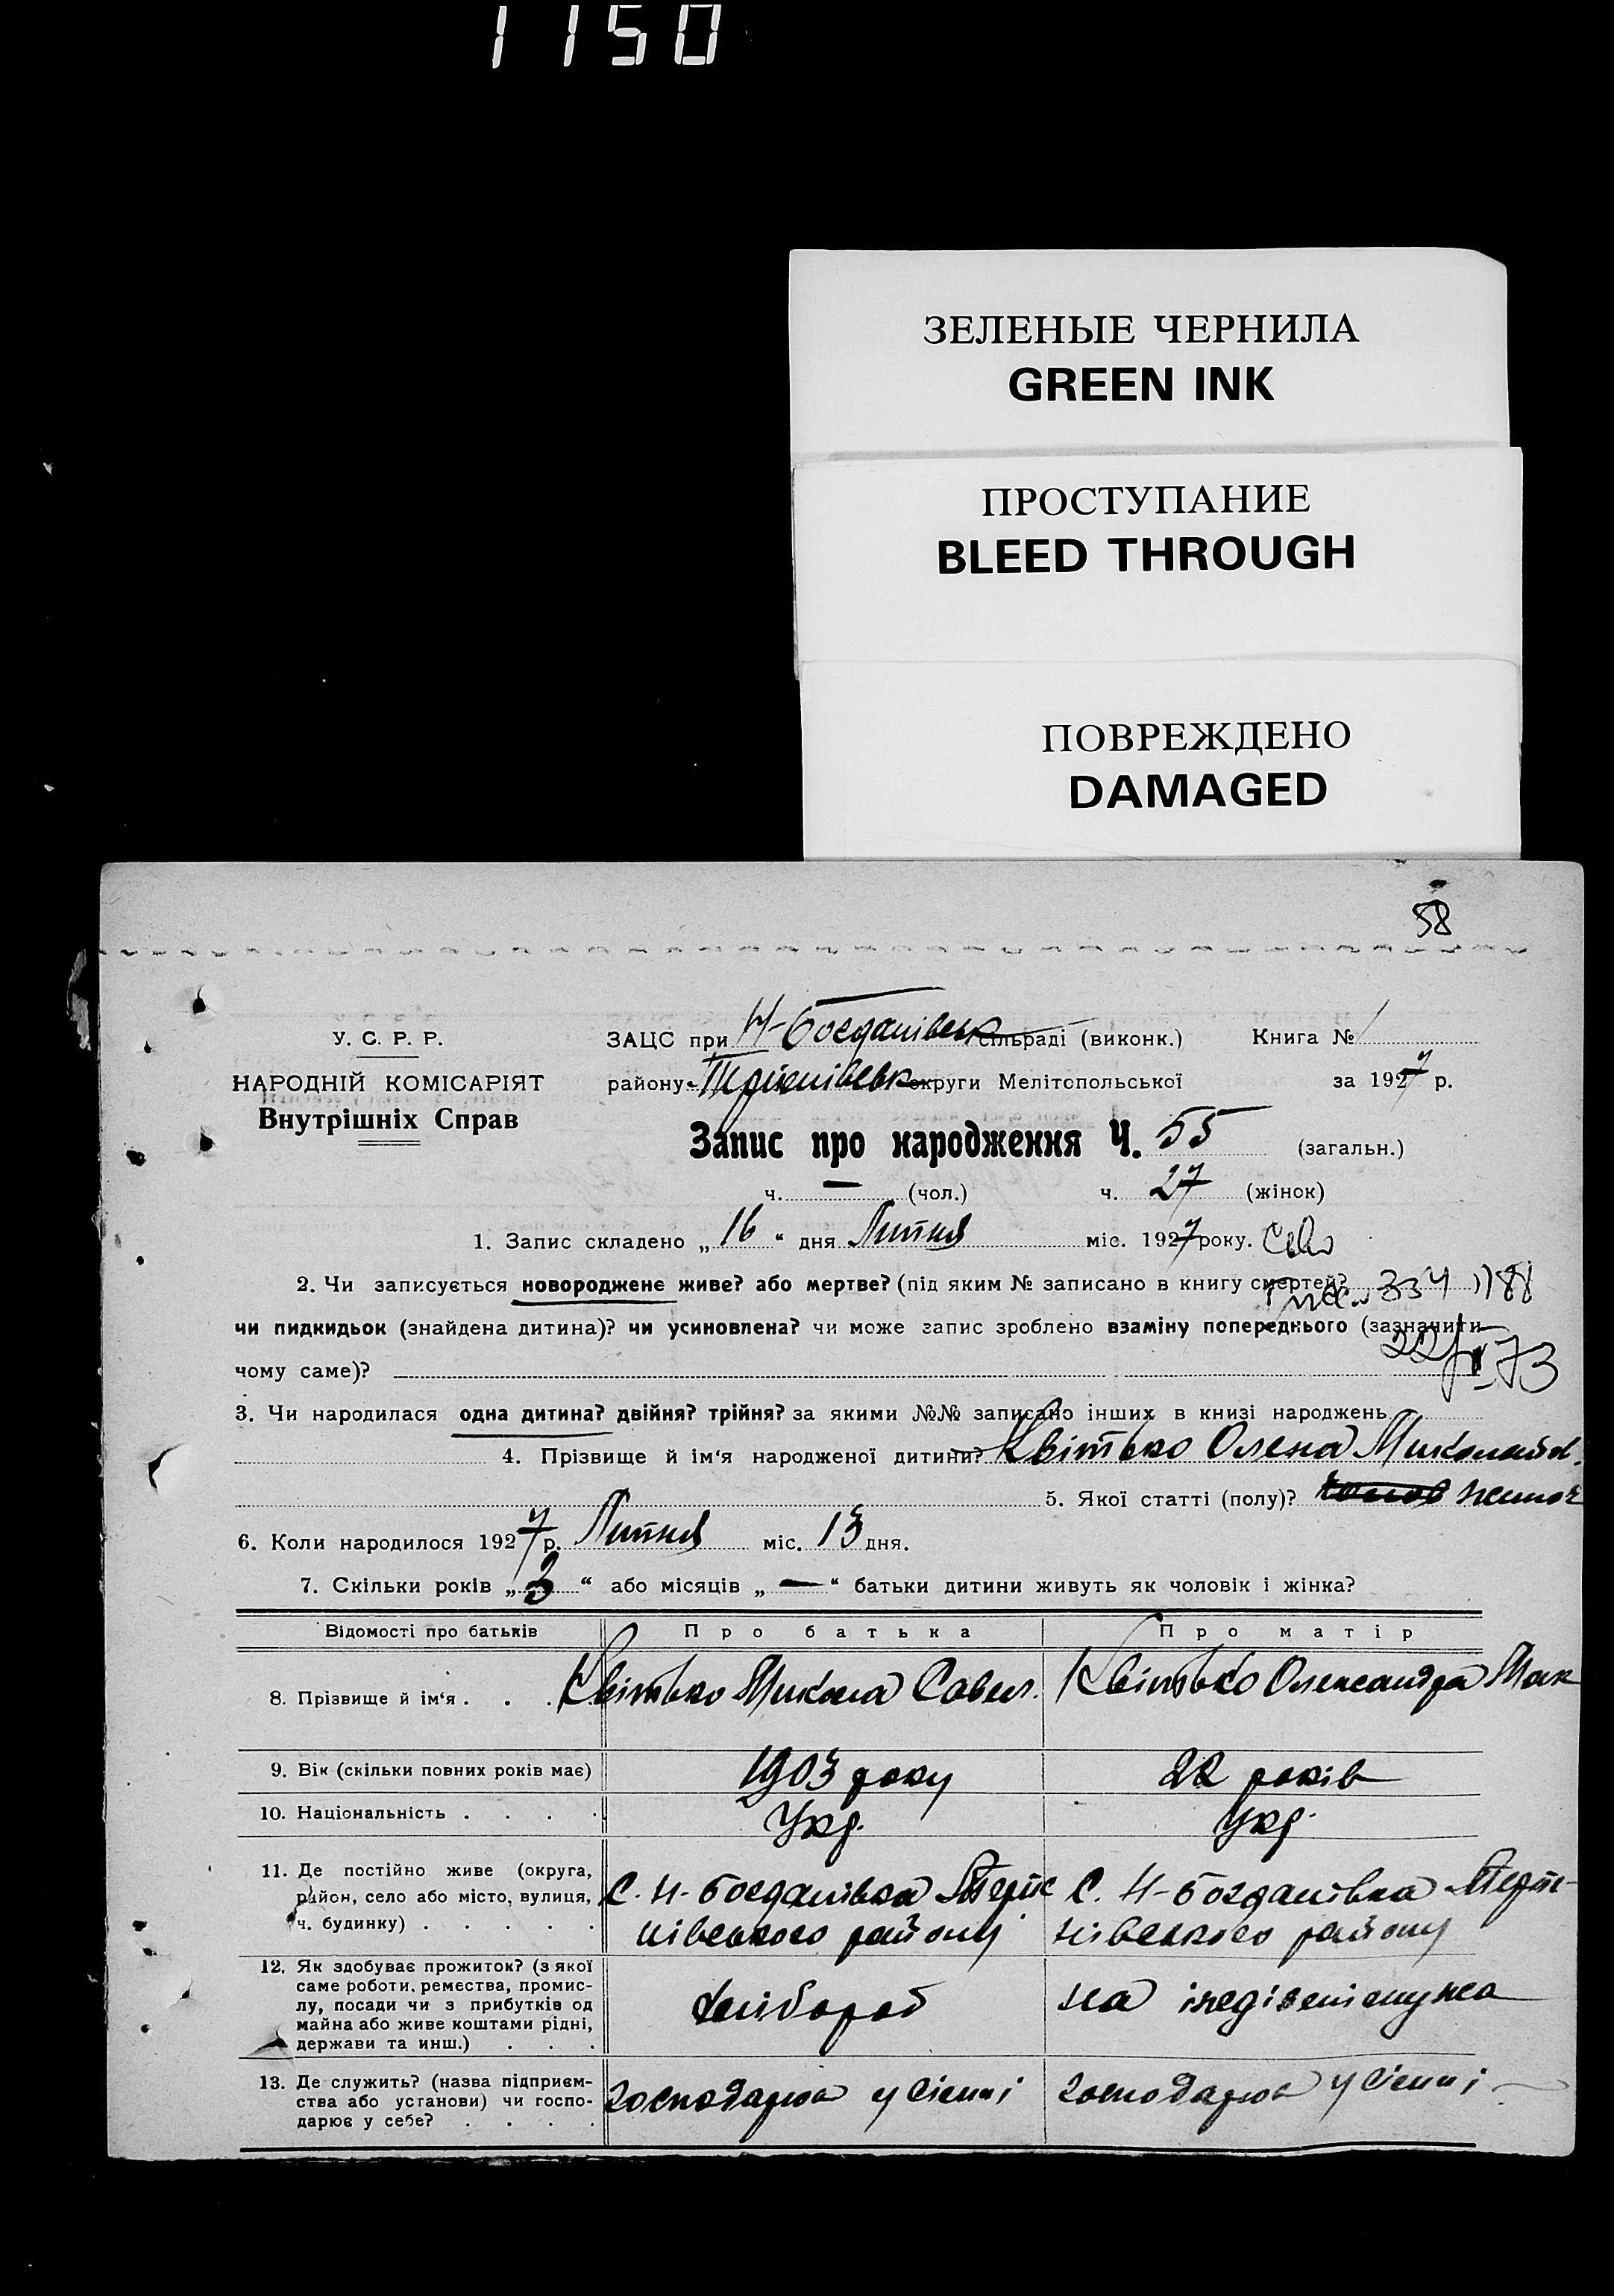 1150
ЗЕЛЕНЫЕ ЧЕРНИЛА
GREEN INK
ПРОСТУПАНИЕ
BLEED THROUGH
ПОВРЕЖДЕНО
DAMAGED
58
У. С. Р. Р.
НАРОДНІЙ КОМІСАРІЯТ
Внутрішніх Справ
ЗАЦС при Н-Богданівськ сільраді (виконк.) Книга № 1
району округи Мелітопольської за 1927 р.
Запис про народження Ч. 55 (загальн.)
ч. — (чол.) ч. 27 (жінок)
1. Запис складено „ 16 “ дня Липня міс. 1927 року.
2. Чи записується новороджене живе? або мертве? (під яким № записано в книгу смертей?
чи пидкидьок (знайдена дитина)? чи усиновлена? чи може запис зроблено взаміну попереднього (зазначити
чому саме)?
3. Чи народилася одна дитина? двійня? трійня? за якими №№ записано інших в книзі народжень
4. Прізвище й ім‘я народженої дитини? Квітько Олена Миколаїв.
5. Якої статті (полу)? жіноч
6. Коли народилося 1927 р. Липня міс. 13 дня.
7. Скільки років „ 3 “ або місяців „ — “ батьки дитини живуть як чоловік і жінка?
Відомості про батьків Про батька Про матір
8. Прізвище й ім‘я . . . Квітько Микола Савел. Квітько Олександра Мак
9. Вік (скільки повних років має) 1903 року 22 років
10. Національність . . . . Укр. Укр.
11. Де постійно живе (округа,
район, село або місто, вулиця,
ч. будинку) . . . . .
С. Н-Богданівка Терпе
нівського району
С. Н-Богданівка Терпе-
нівського району
12. Як здобуває прожиток? (з якої
саме роботи, ремества, промис-
лу, посади чи з прибутків од
майна або живе коштами рідні,
держави та инш.) . . .
хлібороб
на
13. Де служить? (назва підприєм-
ства або установи) чи госпо-
дарює у себе? . . . .
господарює у сіппі
господарює у сіппі